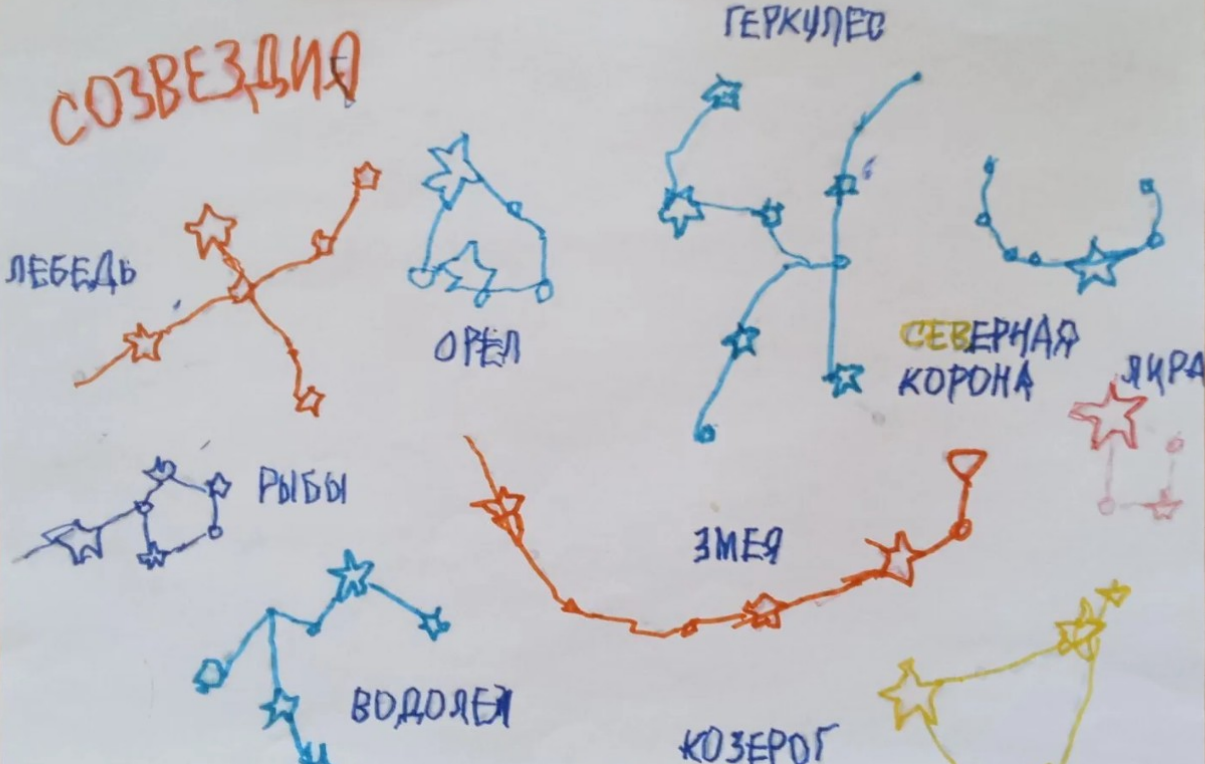 СОЗВЕЗДИЯ
ГЕРКУЛЕС
ЛЕБЕДЬ
ОРЕЛ
СЕВЕРНАЯ
КОРОНА
ЛИРА
РЫБЫ
ЗМЕЯ
ВОДОЛЕЙ
КОЗЕРОГ